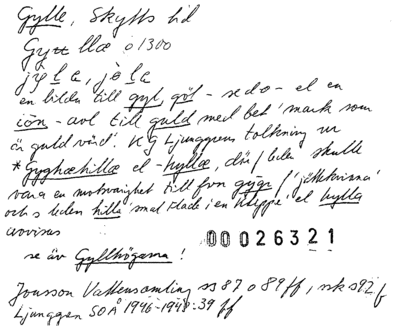 Gylle, Skytts hd
Gyttllæ o 1300
jy̨la, jö̀la
en bildn till gyl, göl - se do - el en
iōn - avl till guld med bet 'mark som
är guld värd'. K G Ljunggrens tolkning ur
*Gyghæhillæ el -hyllæ, där f leden skulle
vara en motsvarighet till fvn gýgr f 'jättekvinna'
och s leden hilla 'smal flade i en klippa' el hylla
avvisas
00026321
se äv Gyllhögarna!
Jonsson Vattensamling ss 87 o 89 ff, sk s 92 f
Ljunggren SOÅ 1946-1948:39 ff